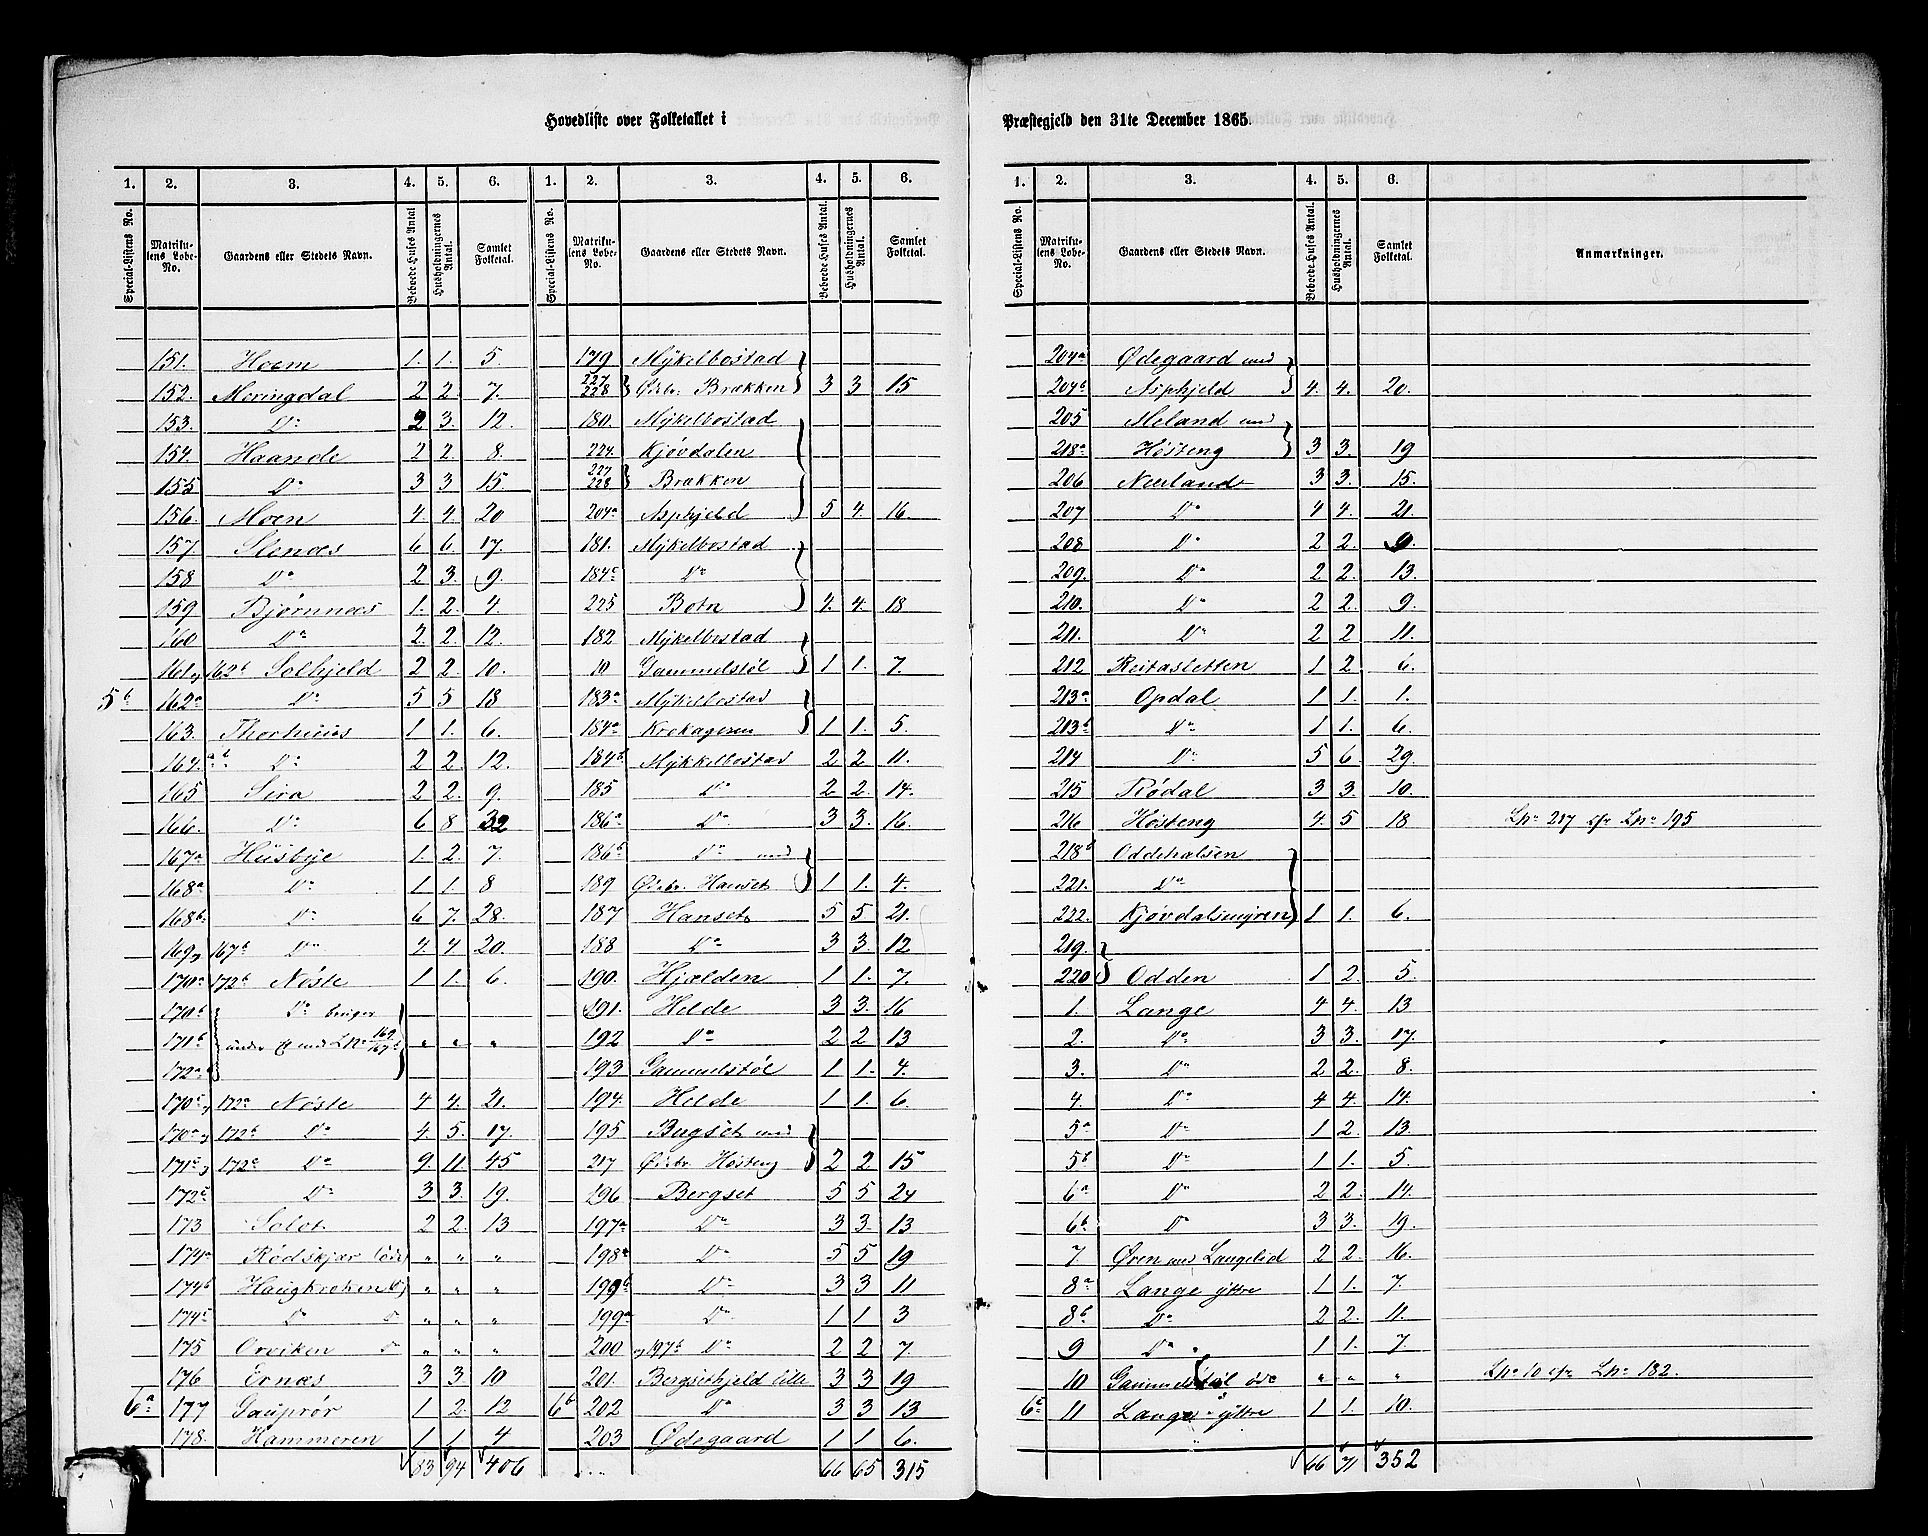 Hovedliste over Folketallet i
Præstegjeld den 31te December 1865.
1. 2. 3. 4. 5. 6. 1. 2. 3. 4. 5. 6.
Special-Listens No. Matrikulens Lobe-No. Gaardens eller Stedets Navn. Beboede Huses Antal Husholdningernes Antal. Samlet Folketal. Special-Listens No. Matrikulens Lobe-No. Gaardens eller Stedets Navn. Beboede Huses Antal. Husholdningernes Antal. Samlet Folketal.
151. Hoem 1. 1. 5.
152. Meringdal 2 2. 7.
153. Do 2 3. 12.
154. Haande 2 2. 8.
155 Do 3 3 15.
156. Moen 4 4. 20
157. Stenæs 6 6. 17.
158 Do 2 3. 9.
159 Bjørnnees 1. 2. 4.
160 Do 2. 2. 12.
161 og 162b Solhjeld 2 2. 10.
5b 162a Do 5 5 18
163. Thorhuus 1 1. 6.
164. a b Do 2 2. 12.
165 Sira 2 2. 9.
166. Do 6 8 32
167a Husbye 1. 2. 7.
168a Do 1 1. 8
168b. Do 6 7. 28.
169 og 167b Do 4. 4. 20.
170a 172b Nøsle 1 1. 6.
170b Do bruges
171b under et med LNo 169 167b " " "
172a
170c og 172a Nøsle 4 4. 21.
170a og 172b Do 4. 5. 17.
171c og 172c Do 9. 11. 45
172c Do 3 3. 19.
173 Solot 2 2. 13
174a Rødskjær (øde) " " "
174b Haugkroken " " "
174c D D " " "
175 Orviken D " " "
176 Ernæs 3 3. 10
6a 177 Gauprør 1 2. 12
178. Hammeren 1 1. 4
83 94 406
179 Mykelbostad
227 228 Ødebr. Brækken 3 3 15
180. Mykelbostad
224. Kjøvdalen
227 228 Brækken
204a Asphjeld 5 4. 16.
181. Mykelbostad
184c Do
225 Botn 4. 4. 18
182 Mykelbostad
10 Gammelstøl 1 1. 7.
183a Mykelbostad
184a Krokageren 1 1. 5.
184b Mykkelbostad 2 2 11.
185 Do 2 2. 14.
186a Do 3 3. 16.
186b Do med
189 Ødebr. Hanset 1 1. 4.
187 Hanset 5 5 21.
188 Do 3 3. 12
190. Hjelden 1 1. 7.
191. Helde 3 3. 16
192 Do 2 2 13
193 Gammelstøl 1 1. 4.
194. Helde 1 1. 6.
195 Bugset med
217 Ødebr Høsteng 2 2 15
196 Bergset 5 5 24
197a Do 3 3. 13
198a Do 5 5 19
199b Do 3 3 11
199a Do 1 1 3
200 og 197b Do 2 2 7
201. Bergsethjeld lille 3 3 19
6b 202 Do 3 3. 13
203 Ødegaard 1 1 6.
66 65 315
1. 2. 3. 4. 5. 6.
Special-Listens No. Matrikulens Lobe-No. Gaardens eller Stedets Navn. Beboede Huses Antal. Husholdningernes Antal. Samlet Folketal. Anmærkninger.
204a Ødegaard med
204b Asphjeld 4. 4. 20.
205 Meland med
218a Høsteng 3 3. 19
206 Nerland 3 3. 15.
207 Do 4 4. 21.
208 Do 2 2. 9.
209. Do 2 2. 13.
210. Do 2 2. 9.
211. Do 2 2 11.
212 Reitasletten 1 2. 6.
213a Opdal 1 1. 1.
213b Do 1 1. 6.
214 Do 5 6. 29.
215 Trødal 3 3. 10.
216 Høsteng 4. 5 18 LNo 217 cfr LNo 195
218b Oddehalsen
221. Do
222. Kjøvdalsmyren 1 1. 6.
219.
220 Odden 1 2. 5.
1. Lange 4 4. 13
2. Do 3 3. 17.
3. Do 2 2. 8.
4. Do 4 4. 14.
5a Do 1 2. 13.
5b Do 1 1. 5.
6a Do 2 2. 14.
6b Do 3 3. 19.
7 Øren med Langelid 2 2. 16.
8a Lange yttre 1 1. 7.
8b Do 2 2. 11.
9 Do " 1 1. 7.
10 Gammelstøl øde " " " LNo 10 cfr LNo 182.
6c 11 Lange yttre 1 1. 10.
66 71 352